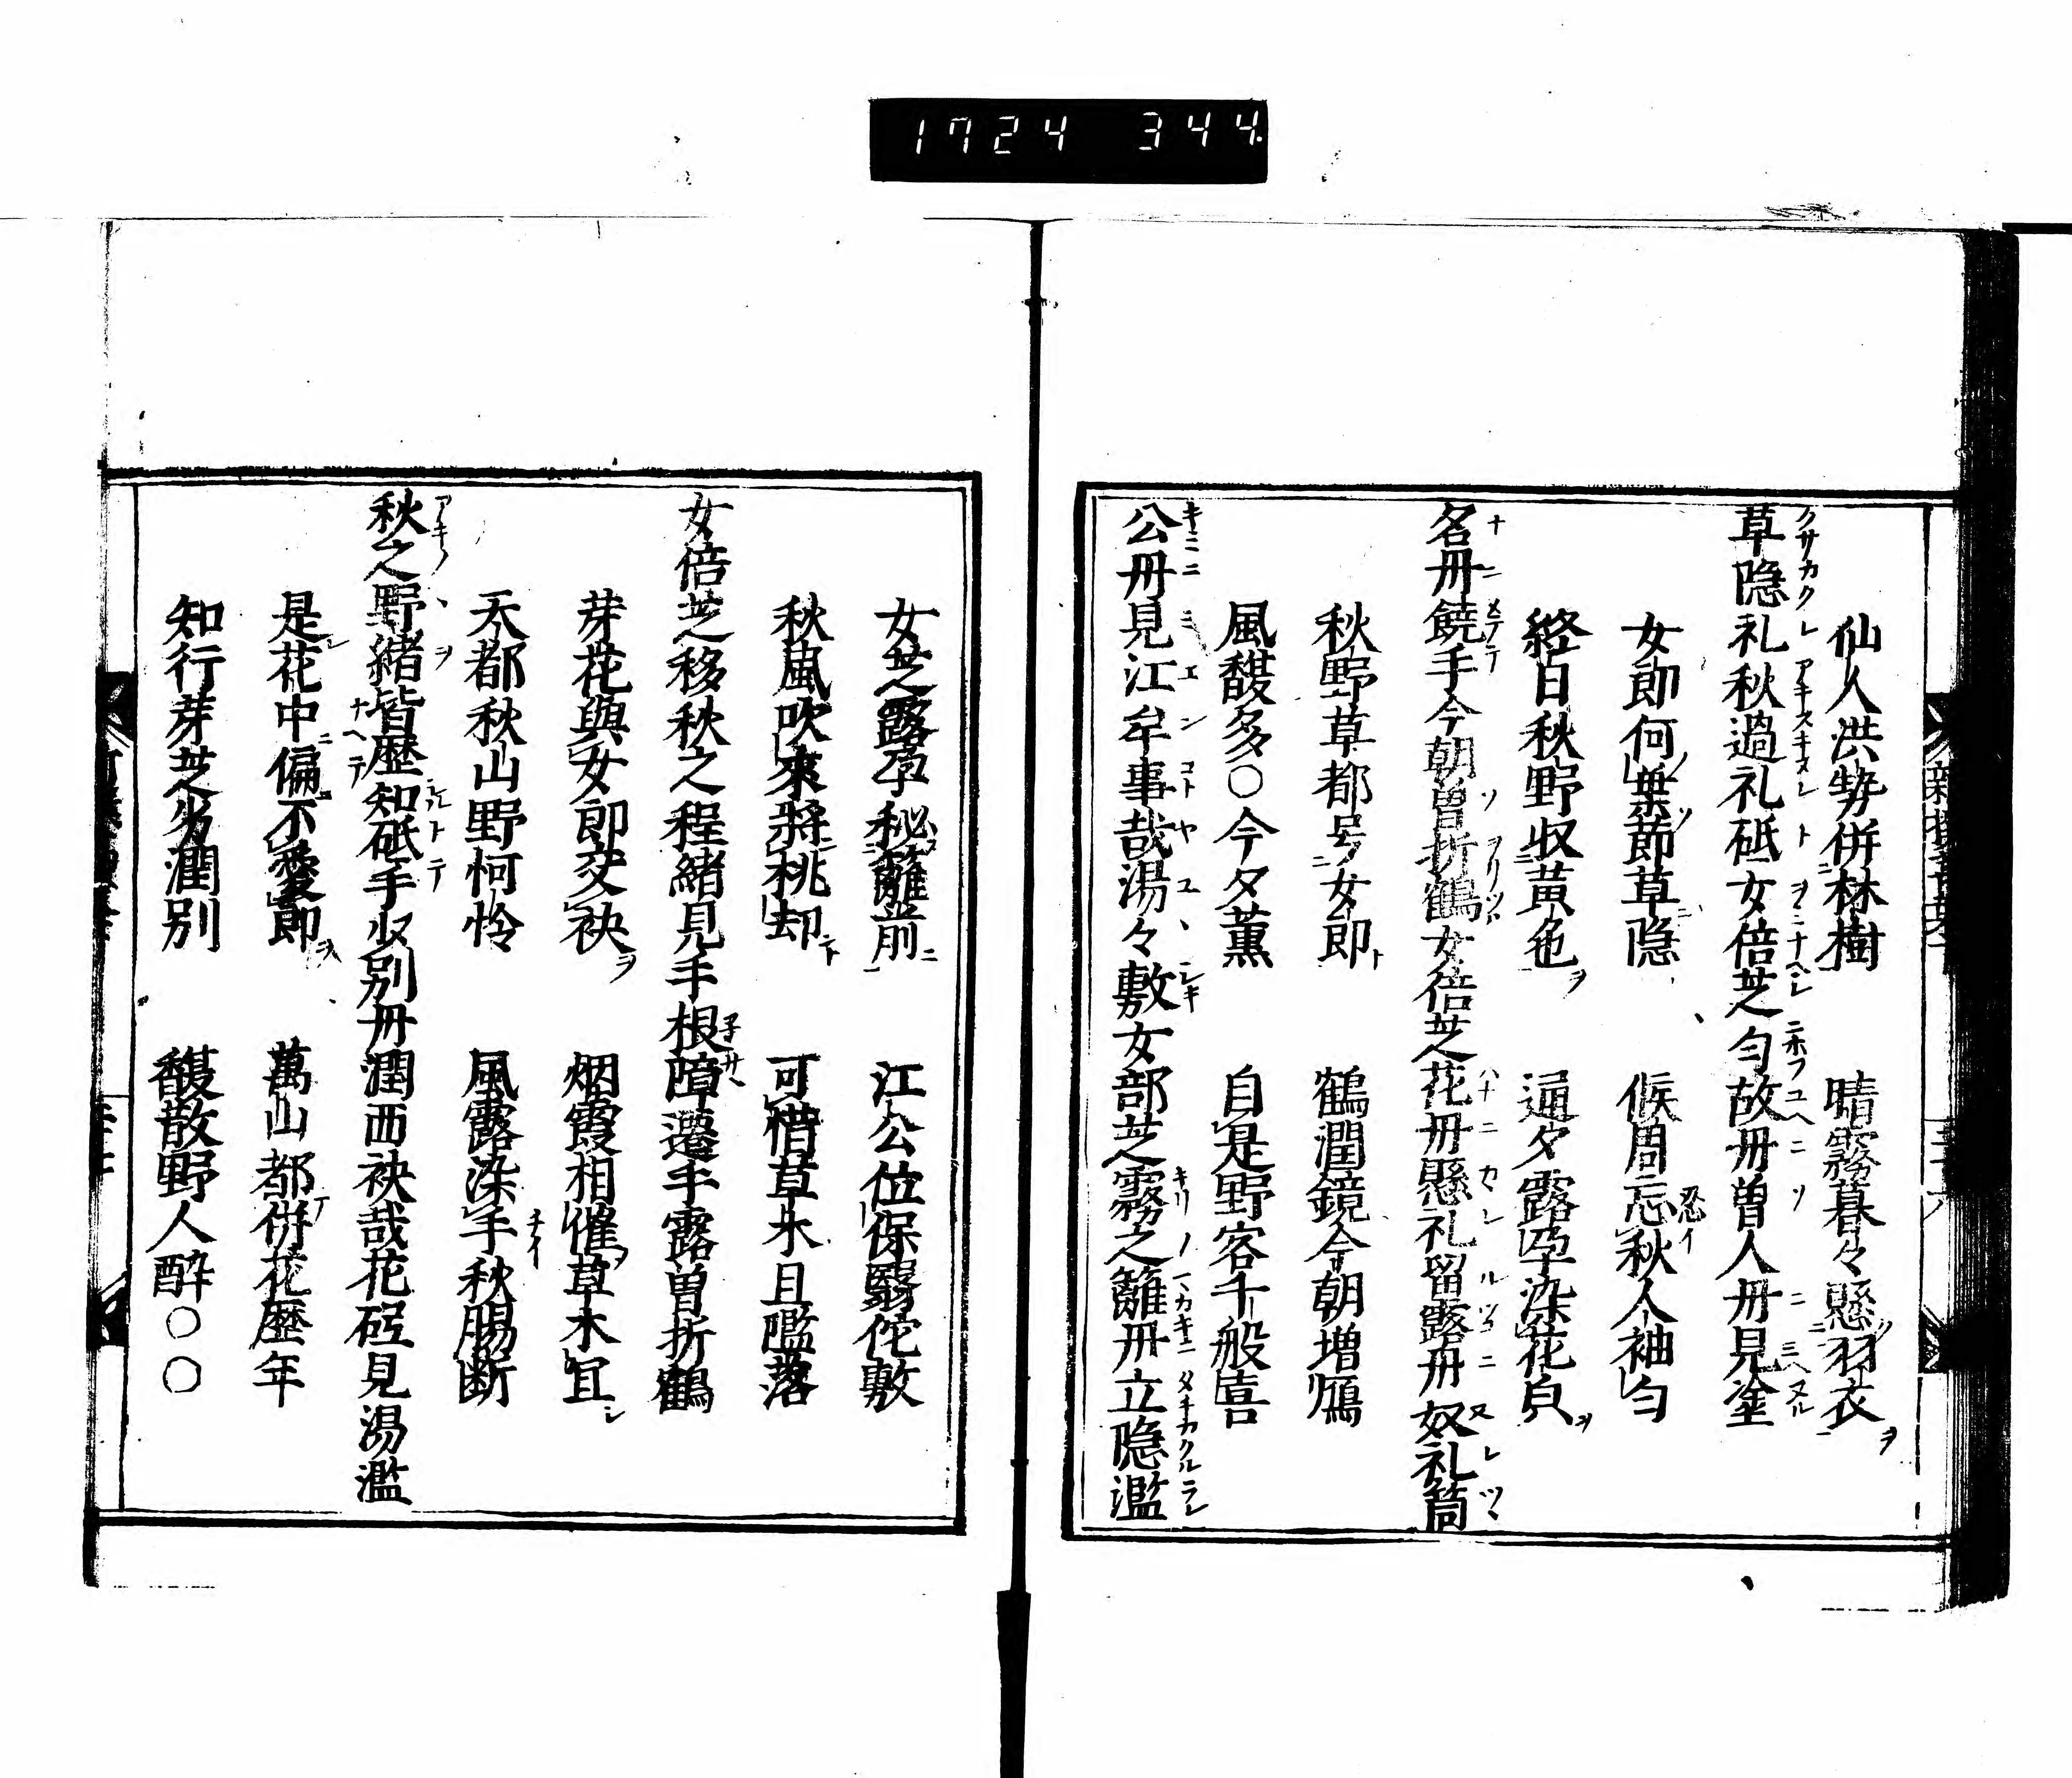 1724 344
仙人洪勢併林樹 晴霧暮々懸羽衣
草隠礼秋過礼砥女倍芝匀故丹曽人丹見塗
女郎何葉節草隠 候周忘秋人袖匀
終日秋野収黄色 通夕露孕染花皃
名丹饒手今朝曽折鶴女倍芝花丹懸礼留露丹奴礼筒
秋野草都号女郎 鶴潤鏡今朝増鴈
風馥多〇今夕薫 自是野客千般喜
公丹見江牟事哉湯々敷女部芝霧之籬丹立隠濫
女芝露孕秘籬前 江公位保翳佗敷
秋風吹來將桃却 可惜草木且濫落
女倍芝移秋之程緒見手根障遷手露曽折鶴
芽花與女郎交袂 烟霞相催草木冝
天都秋山野怜 風露染手秋腸断
秋之野緒皆歴知砥手収別丹潤西袂哉花砥見湯濫
是花中偏不愛郎 萬山都併花歴年
知行芽芝劣潤別 馥散野人酔〇〇